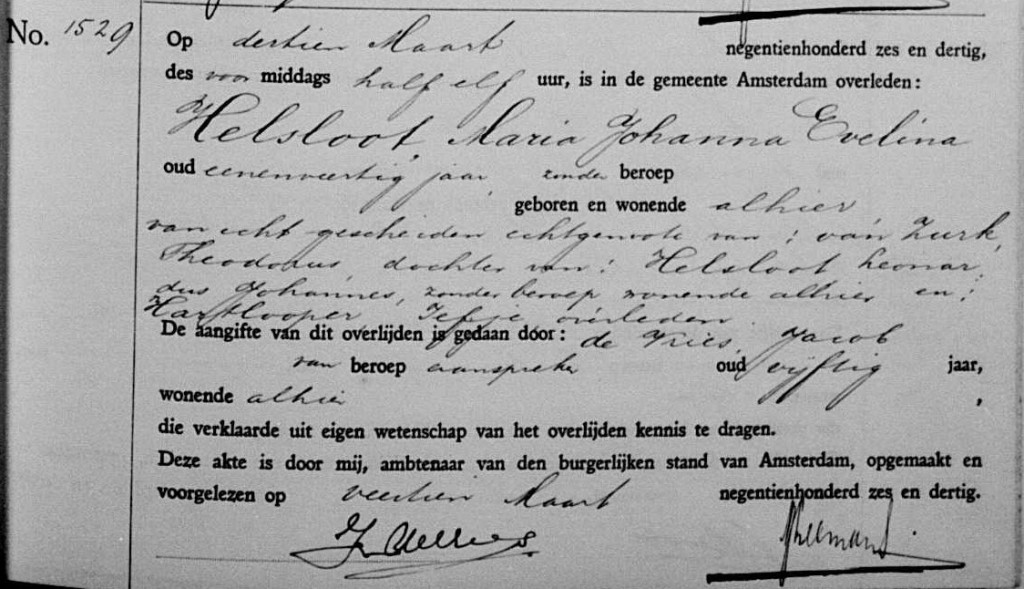 No. 1529
Op dertien Maart negentienhonderd zes en dertig,
des voor middags half elf uur, is in de gemeente Amsterdam overleden:
Helsloot, Maria Johanna Evelina
oud eenenveertig jaar zonder beroep
geboren en wonende alhier
van echt gescheiden echtgenote van: van Zurk,
Theodorus, dochter van: Helsloot Leonar-
dus Johannes, zonder beroep wonende alhier en:
Hartlooper Tefje overleden
De aangifte van dit overlijden is gedaan door: de Vries Jacob
van beroep aanspreker oud vijftig jaar,
wonende alhier ,
die verklaarde uit eigen wetenschap van het overlijden kennis te dragen.
Deze akte is door mij, ambtenaar van den burgerlijken stand van Amsterdam, opgemaakt en
voorgelezen op veertien Maart negentienhonderd zes en dertig.